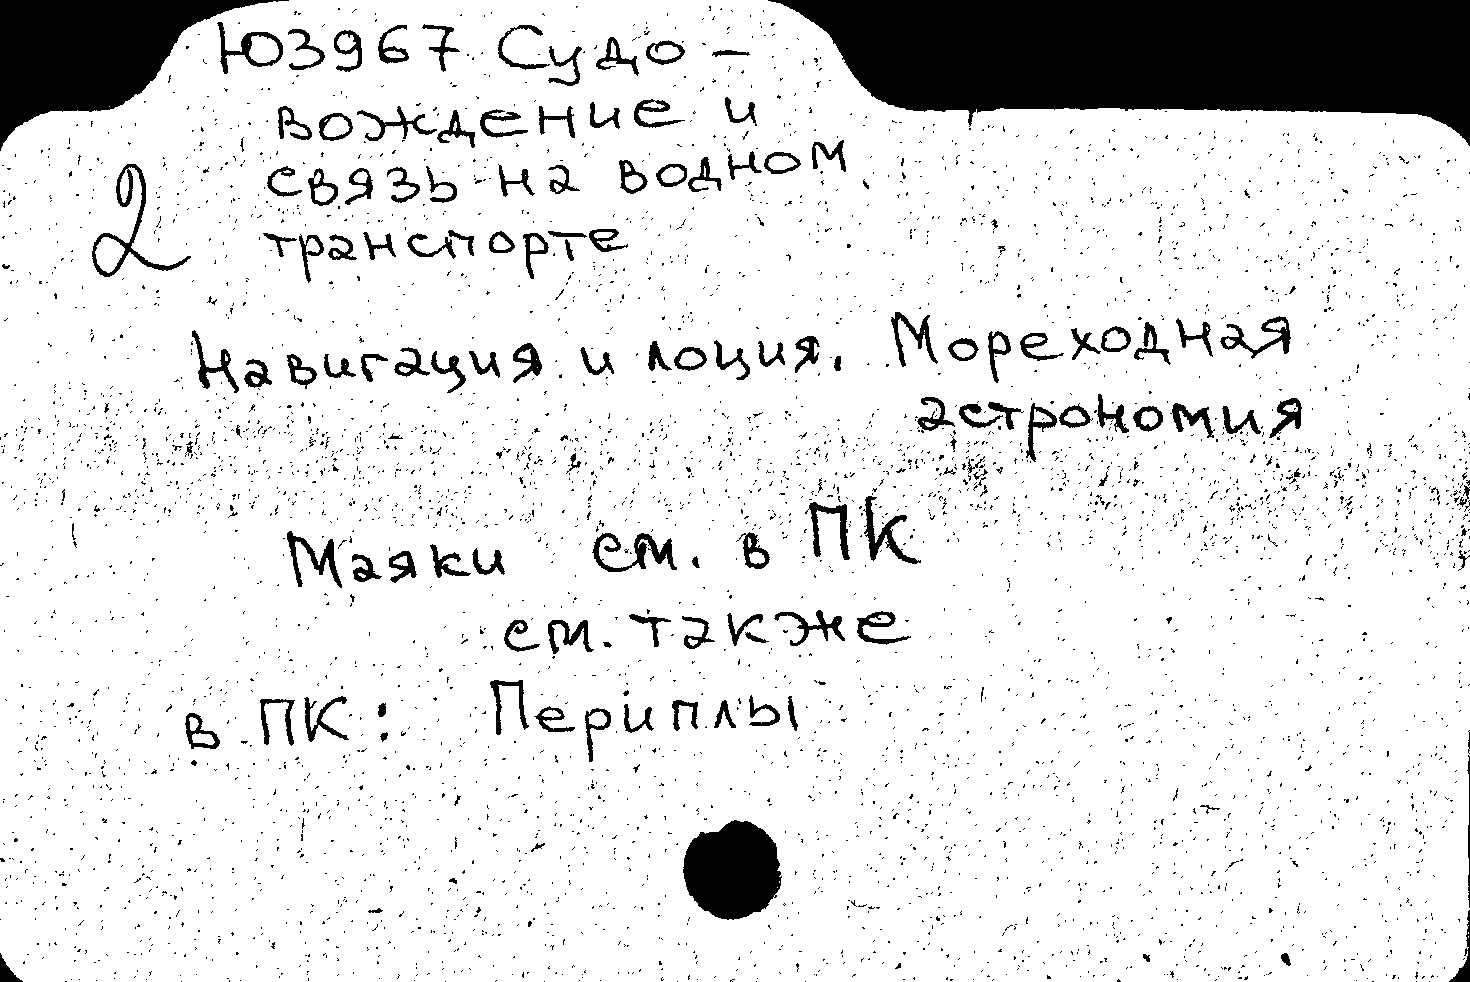 Ю3967 Судо-
вождение и
связь на водном
транспорте
2
Навигация и лоция. Мореходная
астрономия
Маяки см. в ПК
см. также
в ПК: Периплы